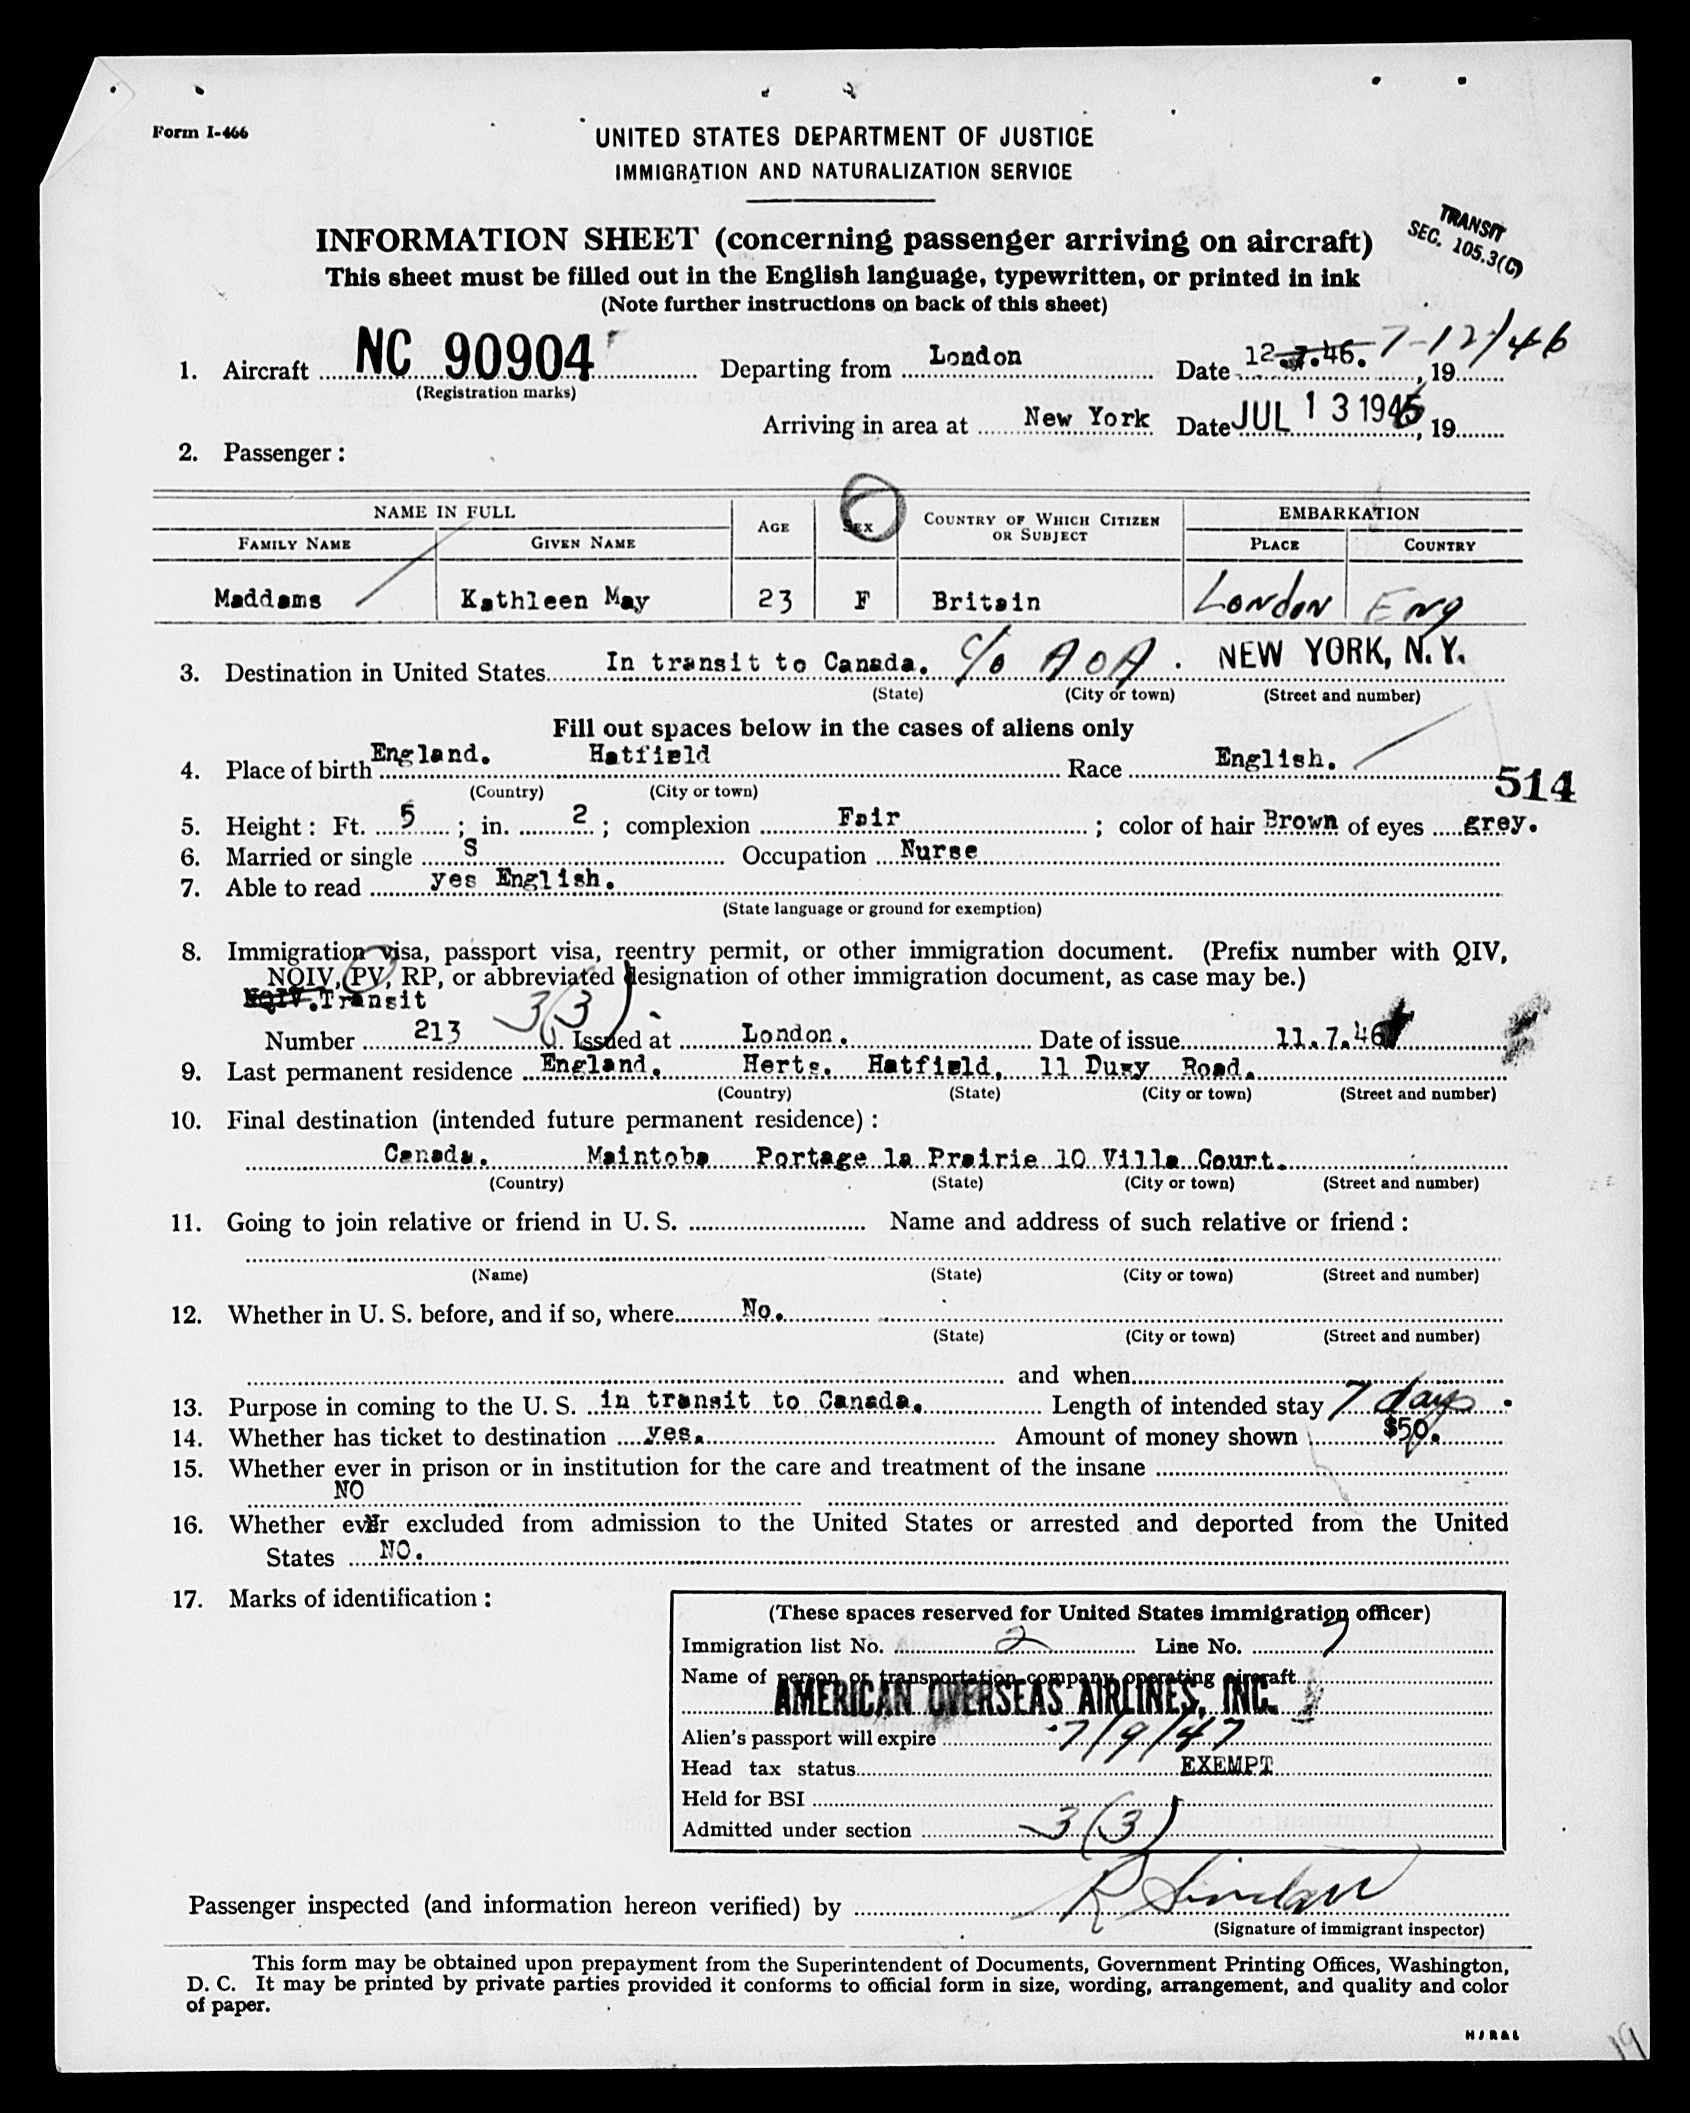 Form I-466
UNITED STATES DEPARTMENT OF JUSTICE
IMMIGRATION AND NATURALIZATION SERVICE
TRANSIT
SEC. 105.3(C)
INFORMATION SHEET (concerning passenger arriving on aircraft)
This sheet must be filled out in the English language, typewritten, or printed in ink
(Note further instructions on back of this sheet)
1. Aircraft NC 90904 Departing from London Date 12.7.46. 7-12/46, 19
(Registration marks)
Arriving in area at New York Date JUL 13 1946, 19
2. Passenger:
NAME IN FULL AGE SEX COUNTRY OF WHICH CITIZEN OR SUBJECT EMBARKATION
FAMILY NAME GIVEN NAME PLACE COUNTRY
Maddams Kathleen May 23 F Britain London Eng
3. Destination in United States In transit to Canada. c/o AOA. NEW YORK, N. Y.
(State) (City or town) (Street and number)
Fill out spaces below in the cases of aliens only
4. Place of birth England. Hatfield Race English.
(Country) (City or town)
514
5. Height: Ft. 5; in. 2; complexion Fair; color of hair Brown of eyes grey.
6. Married or single S Occupation Nurse
7. Able to read yes English.
(State language or ground for exemption)
8. Immigration visa, passport visa, reentry permit, or other immigration document. (Prefix number with QIV,
NQIV, PV, RP, or abbreviated designation of other immigration document, as case may be.)
NQIV.Transit 3(3)
Number 213 Issued at London. Date of issue 11.7.46
9. Last permanent residence England. Herts. Hatfield, 11 Dury Road.
(Country) (State) (City or town) (Street and number)
10. Final destination (intended future permanent residence):
Canada. Maintoba Portage la Prairie 10 Villa Court.
(Country) (State) (City or town) (Street and number)
11. Going to join relative or friend in U. S. Name and address of such relative or friend:
(Name) (State) (City or town) (Street and number)
12. Whether in U. S. before, and if so, where No.
(State) (City or town) (Street and number)
and when
13. Purpose in coming to the U. S. in transit to Canada. Length of intended stay 7 days.
14. Whether has ticket to destination yes. Amount of money shown $50.
15. Whether ever in prison or in institution for the care and treatment of the insane
NO
16. Whether ever excluded from admission to the United States or arrested and deported from the United
States NO.
17. Marks of identification:
(These spaces reserved for United States immigration officer)
Immigration list No. 2 Line No. 7
Name of person or transportation company operating aircraft
AMERICAN OVERSEAS AIRLINES, INC.
Alien's passport will expire 7/9/47
Head tax status EXEMPT
Held for BSI
Admitted under section 3(3)
Passenger inspected (and information hereon verified) by
(Signature of immigrant inspector)
This form may be obtained upon prepayment from the Superintendent of Documents, Government Printing Offices, Washington,
D. C. It may be printed by private parties provided it conforms to official form in size, wording, arrangement, and quality and color
of paper.
19